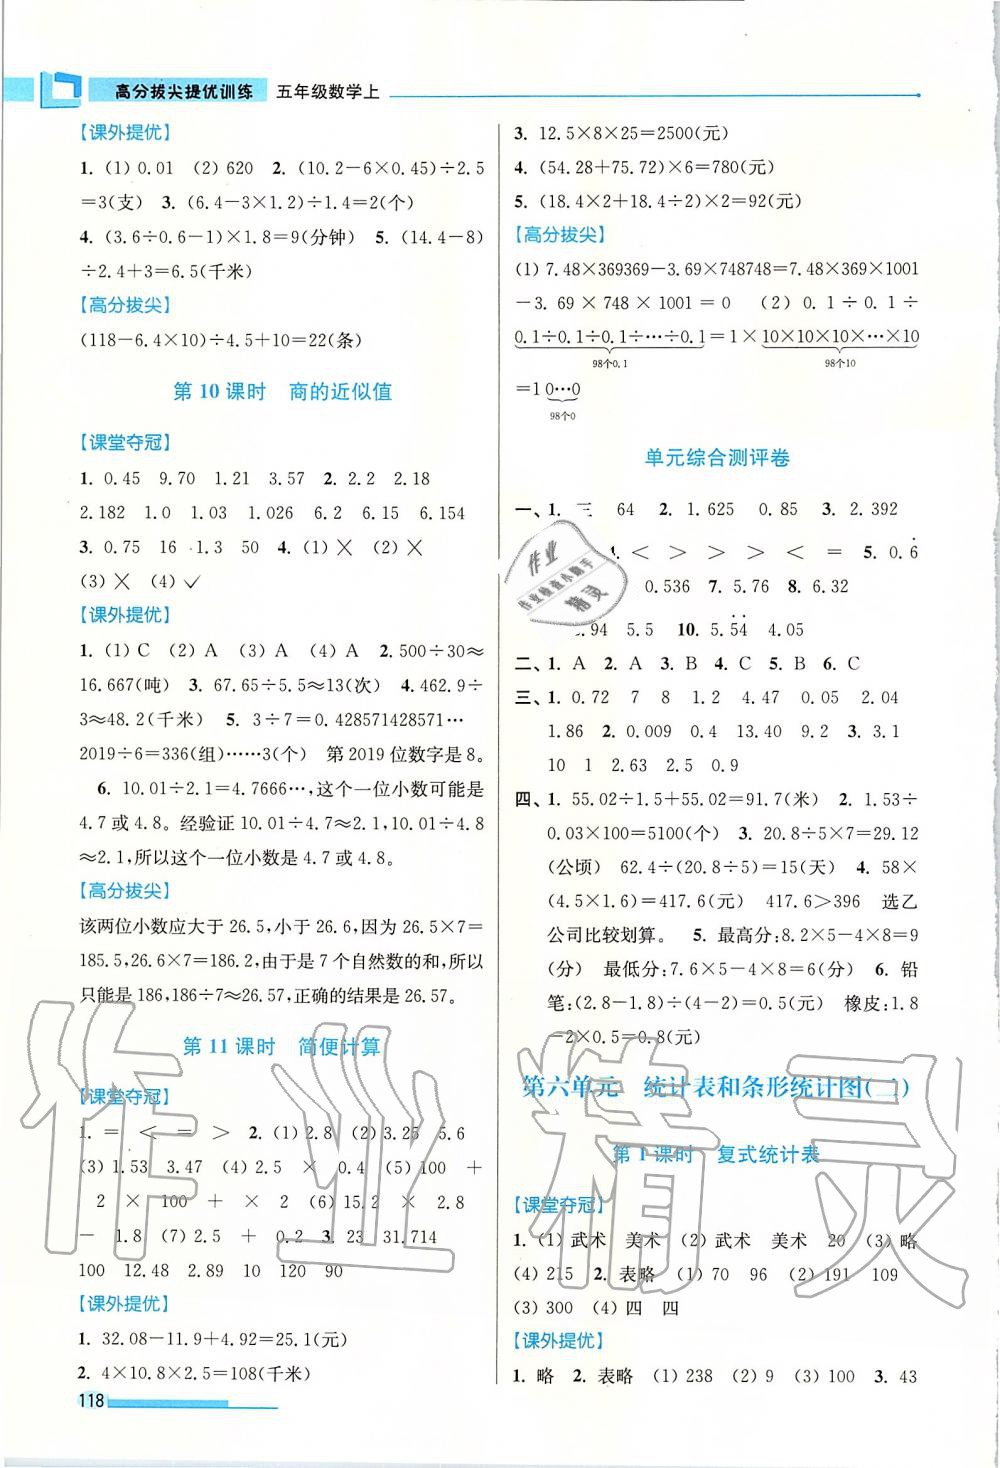 高分拔尖提优训练 五年级数学上
【课外提优】
1. (1)0.01 (2)620 2. (10.2－6×0.45)÷2.5
=3(支) 3. (6.4－3×1.2)÷1.4=2(个)
4. (3.6÷0.6－1)×1.8=9(分钟) 5. (14.4－8)
÷2.4＋3=6.5(千米)
【高分拔尖】
(118－6.4×10)÷4.5＋10=22(条)
第10课时 商的近似值
【课堂夺冠】
1. 0.45 9.70 1.21 3.57 2. 2.2 2.18
2.182 1.0 1.03 1.026 6.2 6.15 6.154
3. 0.75 16 1.3 50 4. (1)╳ (2)╳
(3)╳ (4)✓
【课外提优】
1. (1)C (2)A (3)A (4)A 2. 500÷30≈
16.667(吨) 3. 67.65÷5.5≈13(次) 4. 462.9÷
3≈48.2(千米) 5. 3÷7=0.428571428571⋯
2019÷6=336(组)⋯⋯3(个) 第2019位数字是8。
6. 10.01÷2.1=4.7666⋯,这个一位小数可能是
4.7或4.8。经验证10.01÷4.7≈2.1,10.01÷4.8
≈2.1,所以这个一位小数是4.7或4.8。
【高分拔尖】
该两位小数应大于26.5,小于26.6,因为26.5×7=
185.5,26.6×7=186.2,由于是7个自然数的和,所以
只能是186,186÷7≈26.57,正确的结果是26.57。
第11课时 简便计算
【课堂夺冠】
1. = < = > 2. (1)2.8 (2)3.25 5.6
(3)1.53 3.47 (4)2.5 × 0.4 (5)100 ＋
2 × 100 ＋ × 2 (6)15 × 2.8
－ 1.8 (7)2.5 ＋ 0.2 3. 23 31.714
100 12.48 2.89 10 120 90
【课外提优】
1. 32.08－11.9＋4.92=25.1(元)
2. 4×10.8×2.5=108(千米)
118
3. 12.5×8×25=2500(元)
4. (54.28＋75.72)×6=780(元)
5. (18.4×2＋18.4÷2)×2=92(元)
【高分拔尖】
(1)7.48×369369－3.69×748748=7.48×369×1001
－3.69×748×1001=0 (2)0.1÷0.1÷
0.1÷0.1÷0.1÷⋯÷0.1=1×10×10×10×⋯×10
98个0.1 98个10
=10⋯0
98个0
单元综合测评卷
一、1. 三 64 2. 1.625 0.85 3. 2.392
4. < > > > < = 5. 0.6̇
0.536 7. 5.76 8. 6.32
.94 5.5 10. 5.5̇4̇ 4.05
二、1. A 2. A 3. B 4. C 5. B 6. C
三、1. 0.72 7 8 1.2 4.47 0.05 2.04
1.86 2. 0.009 0.4 13.40 9.2 3. 3.1
10 1 2.63 2.5 0.9
四、1. 55.02÷1.5＋55.02=91.7(米) 2. 1.53÷
0.03×100=5100(个) 3. 20.8÷5×7=29.12
(公顷) 62.4÷(20.8÷5)=15(天) 4. 58×
(4.5×1.6)=417.6(元) 417.6>396 选乙
公司比较划算。 5. 最高分:8.2×5－4×8=9
(分) 最低分:7.6×5－4×8=6(分) 6. 铅
笔:(2.8－1.8)÷(4－2)=0.5(元) 橡皮:1.8
－2×0.5=0.8(元)
第六单元 统计表和条形统计图(二)
第1课时 复式统计表
【课堂夺冠】
1. (1)武术 美术 (2)武术 美术 20 (3)略
(4)215 2. 表略 (1)70 96 (2)191 109
(3)300 (4)四 四
【课外提优】
1. 略 2. 表略 (1)238 (2)9 (3)102 3. 43
作业
作业检查小助手
精灵
作业精灵